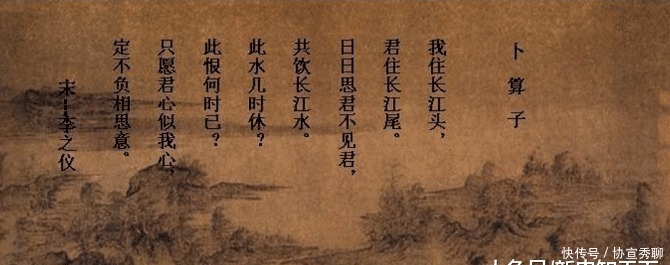 卜算子
我住长江头，
君住长江尾。
日日思君不见君，
共饮长江水。
此水几时休？
此恨何时己？
只愿君心似我心，
定不负相思意。
宋--李之仪
快传号 / 协宣秀聊